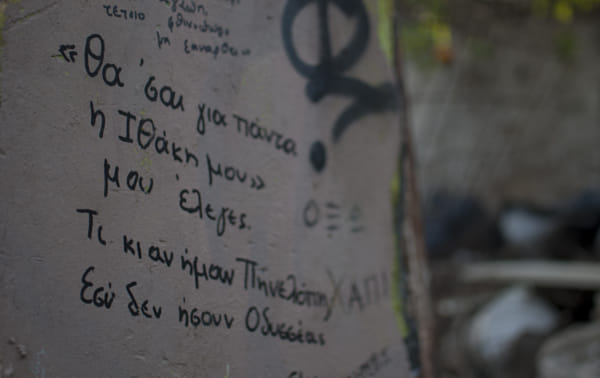 τέτοιο φθινόπωρο
«Θα 'σαι για πάντα
η Ιθάκη μου»
μου έλεγες.
Τι κι αν ήμουν Πηνελόπη
Εσύ δεν ήσουν Οδυσσέας
ΧΑΠΙ